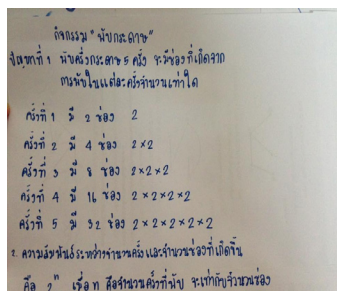 กิจกรรม "พับกระดาษ"
ปัญหาที่ 1 พับครึ่งกระดาษ 5 ครั้ง จะมีช่องที่เกิดจาก
การพับในแต่ละครั้งจำนวนเท่าใด
ครั้งที่ 1 มี 2 ช่อง 2
ครั้งที่ 2 มี 4 ช่อง 2×2
ครั้งที่ 3 มี 8 ช่อง 2×2×2
ครั้งที่ 4 มี 16 ช่อง 2×2×2×2
ครั้งที่ 5 มี 32 ช่อง 2×2×2×2×2
2. ความสัมพันธ์ระหว่างจำนวนครั้งและจำนวนช่องที่เกิดขึ้น
คือ 2ⁿ เมื่อ n คือจำนวนครั้งที่พับ จะเท่ากับจำนวนช่อง